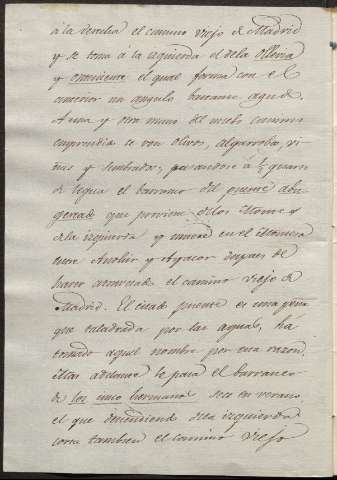 á la derecha el camino viejo de Madrid
y se toma á la izquierda el de la Ollería
y Onteniente el qual forma con el
anterior un angulo bastante agudo.
A una y otra mano del nuebo camino
emprendido se ven olivos, algarrobos, vi-
ñas y sembrados, pasandose á ½ quarto
de legua el barranco del puente abu-
gereado que proviene de los Montes
de la izquierda y muere en el
entre Anchur y Ayacor despues de
haver atravesado el camino viejo de
Madrid. El citado puente es una peña
que taladrada por las aguas, ha
tomado aquel nombre por esta razon.
Mas adelante se pasa el barranco
de los cinco hermanos seco en verano
el que decendiendo de la izquierda
corta tambien el camino viejo